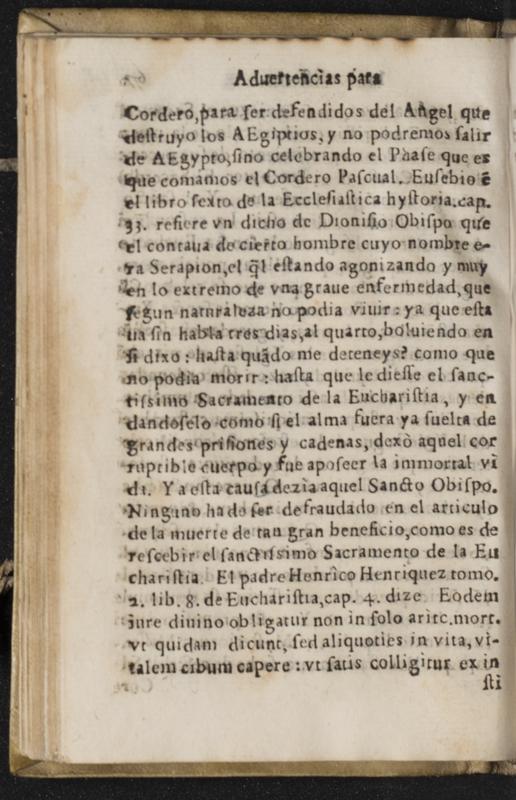 Aduertencias para
Cordero, para ser defendidos del Angel que
destruyo los AEgiptios, y no podremos salir
de AEgypto, sino celebrando el Phase que es
que comamos el Cordero Pascual. Eusebio ē
el libro sexto de la Ecclesiastica hystoria. cap.
33. refiere vn dicho de Dionisio Obispo que
el contaua de cierto hombre cuyo nombre e-
ra Serapion, el q̄l estando agonizando y muy
en lo extremo de vna graue enfermedad, que
segun naturaleza no podia viuir: ya que esta
ua sin habla tres dias, al quarto, boluiendo en
si dixo: hasta quādo me deteneys? como que
no podia morir: hasta que le diesse el sanc-
tissimo Sacramento de la Eucharistia, y en
dandoselo como si el alma fuera ya suelta de
grandes prisiones y cadenas, dexò aquel cor
ruptible cuerpo y fue aposeer la immortal vi
da. Y a esta causa dezia aquel Sancto Obispo.
Ninguno ha de ser defraudado en el articulo
de la muerte de tan gran beneficio, como es de
rescebir el sanctissimo Sacramento de la Eu
charistia. El padre Henrico Henriquez tomo.
2. lib. 8. de Eucharistia, cap. 4. dize Eodem
iure diuino obligatur non in solo aritc. mort.
vt quidam dicunt, sed aliquoties in vita, vi-
talem cibum capere: vt satis colligitur ex in
sti